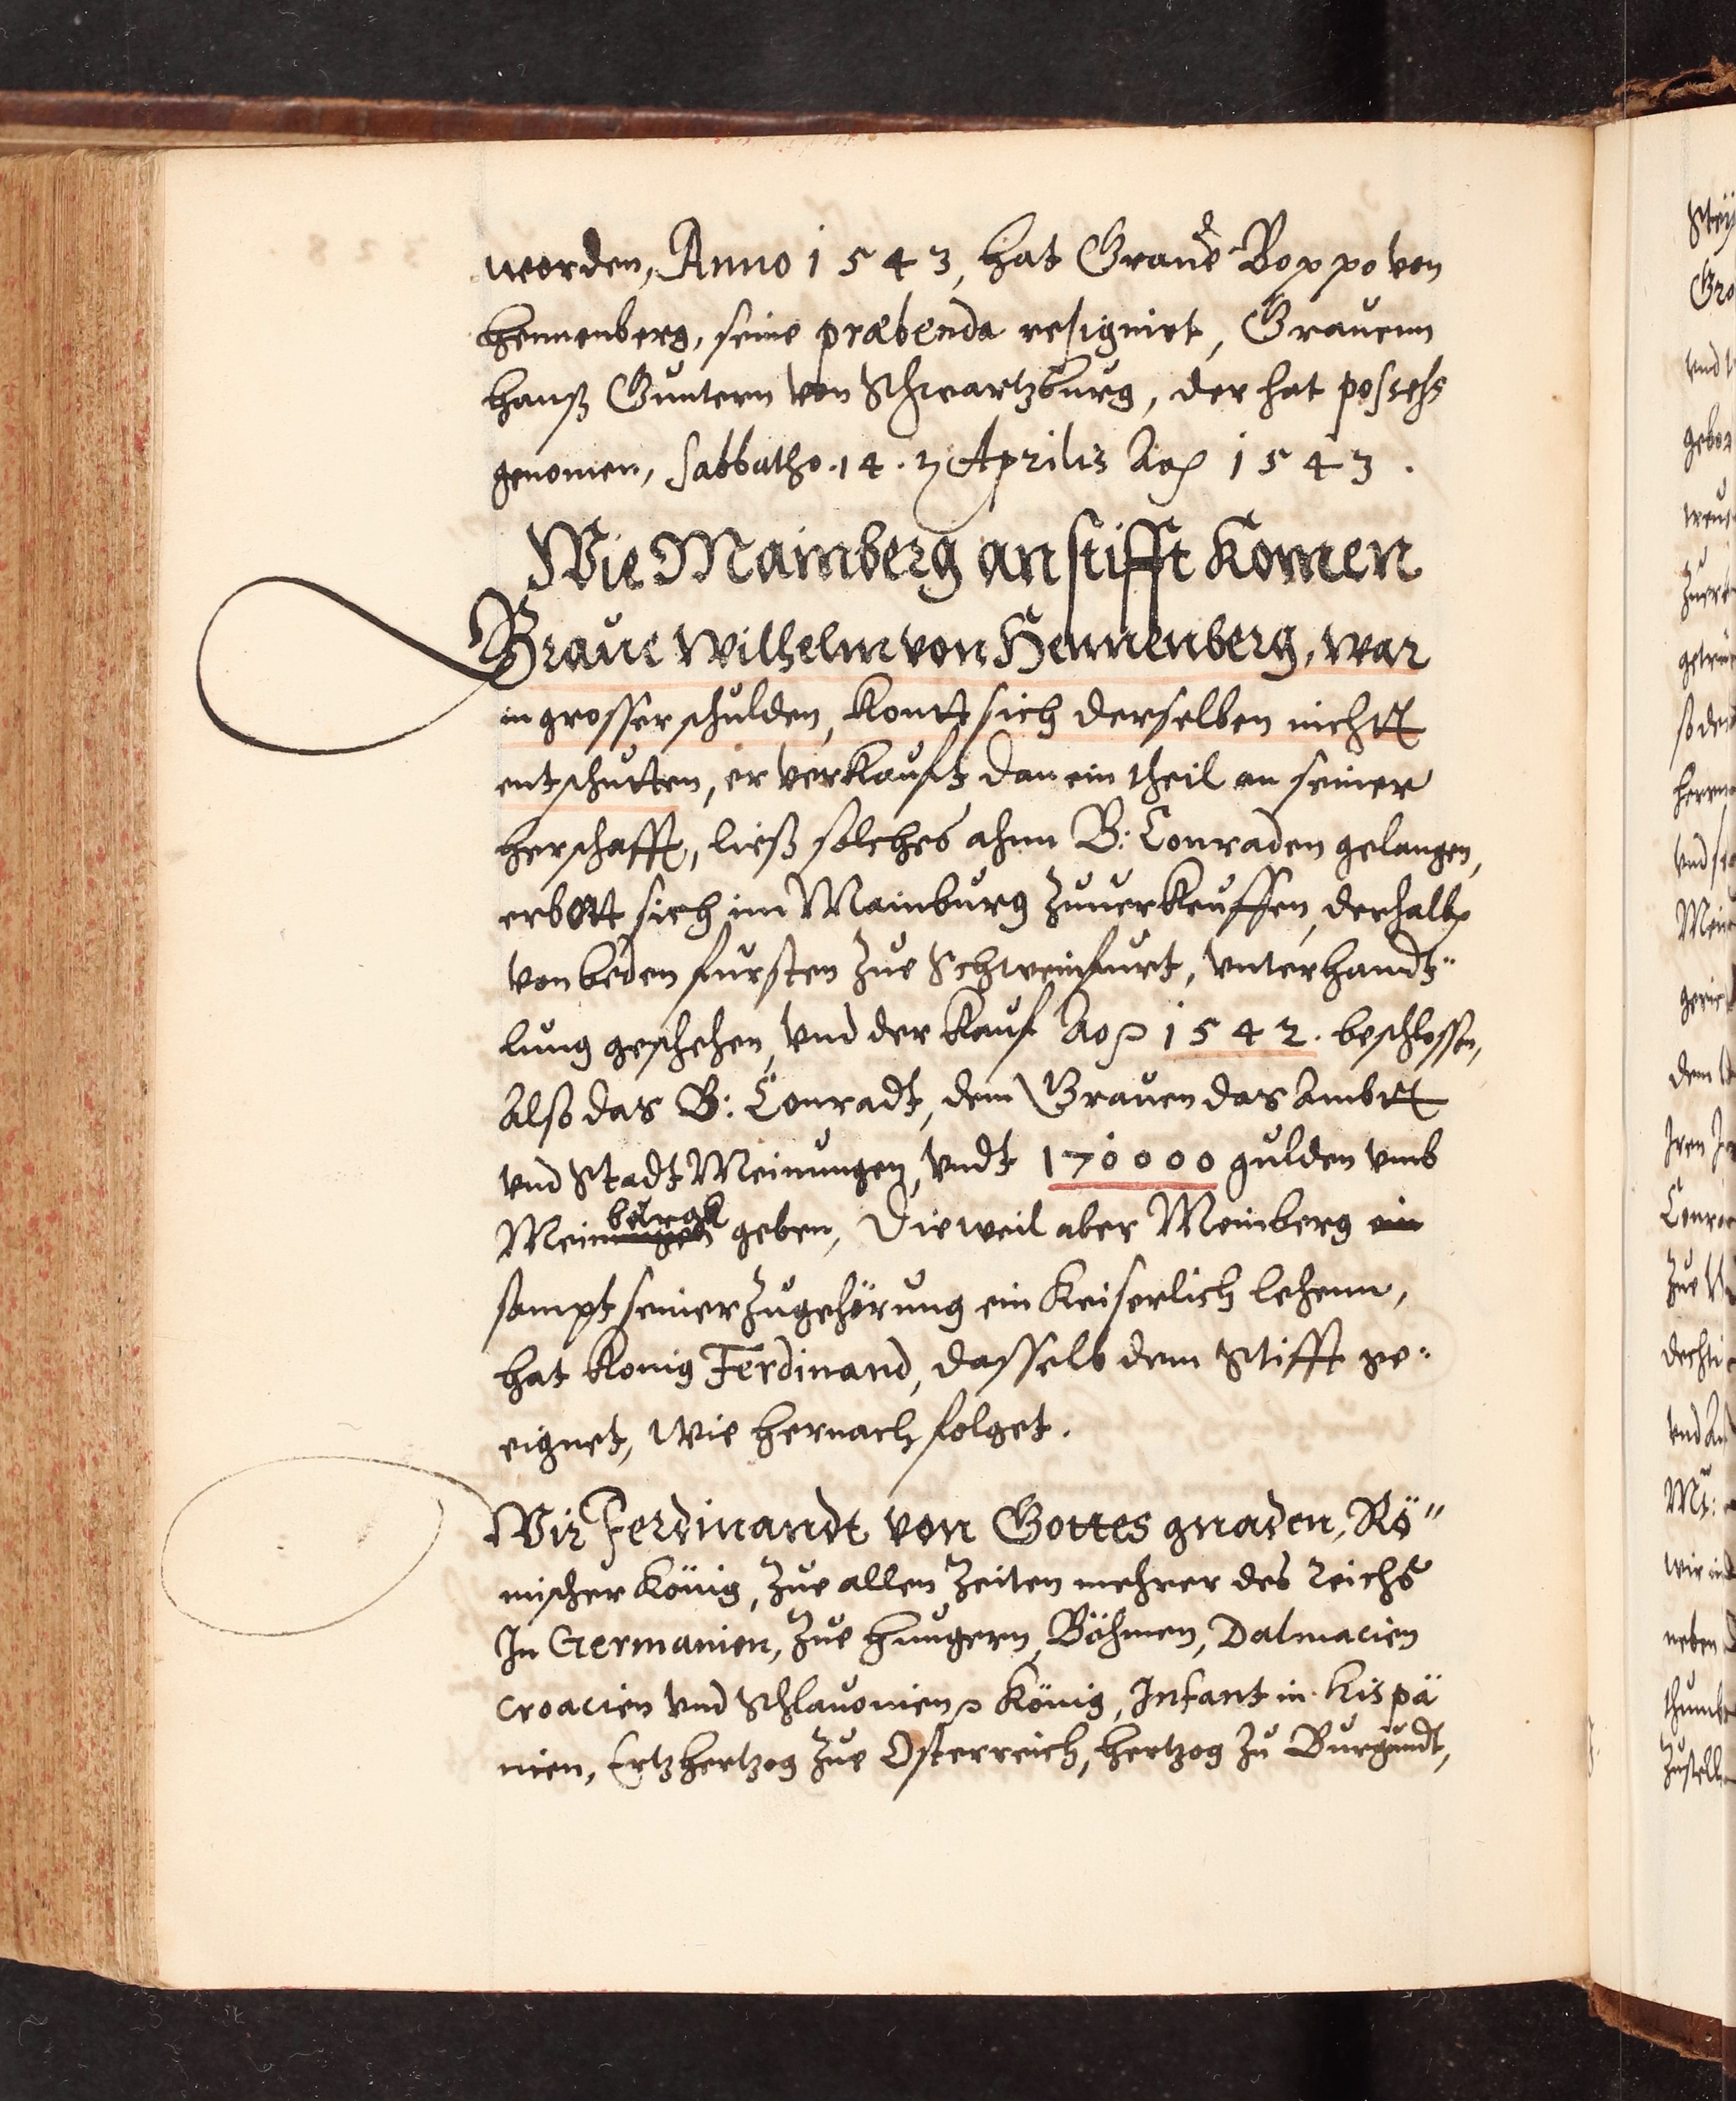 worden, Anno 1543, hat Graue Boppo von
Hennenberg, seine præbenda resignirt, Grauenn
Hanß Guntern von Schwartzburg, der hat possess
genomen, Sabbatho. 14. Aprilis Ao 1543.
Wie Mainberg an stifft Komen
Graue Wilhelm von Hennenberg, war
in grosser schulden, kontt sich derselben nicht
entschutten, er verkaufft dan ein theil an seiner
herschafft, ließ solches ahnn B: Conraden gelangen,
erbott sich im Mainburg zuuerkeuffen, derhalb
von beden fursten zue Schweinfurt, vnterhandt"
lung geschehen, vnd der Kauf Ao 1542. beschlossen,
Also das B: Conradt, dem Grauen das Ambt
vnd Stadt Meinungen, vndt 170000 gulden vmb
Meinbürgk geben, Dieweil aber Meinberg ein
sampt seiner zugehörung ein Keiserlich lehenn,
hat Konig Ferdinand, dasselb dem Stifft ge:
eignet, wie hernach folget.
Wir Ferdinandt von Gottes gnaden, Rö"
mischer König, zue allen Zeiten mehrer des Reichs
In Germanien, zue Hungern, Böhmen, Dalmacien
Croacien vnd Schlauonien König, Infant in Hispä
nien, Ertzhertzog zue Osterreich, Hertzog zu Burgundt,